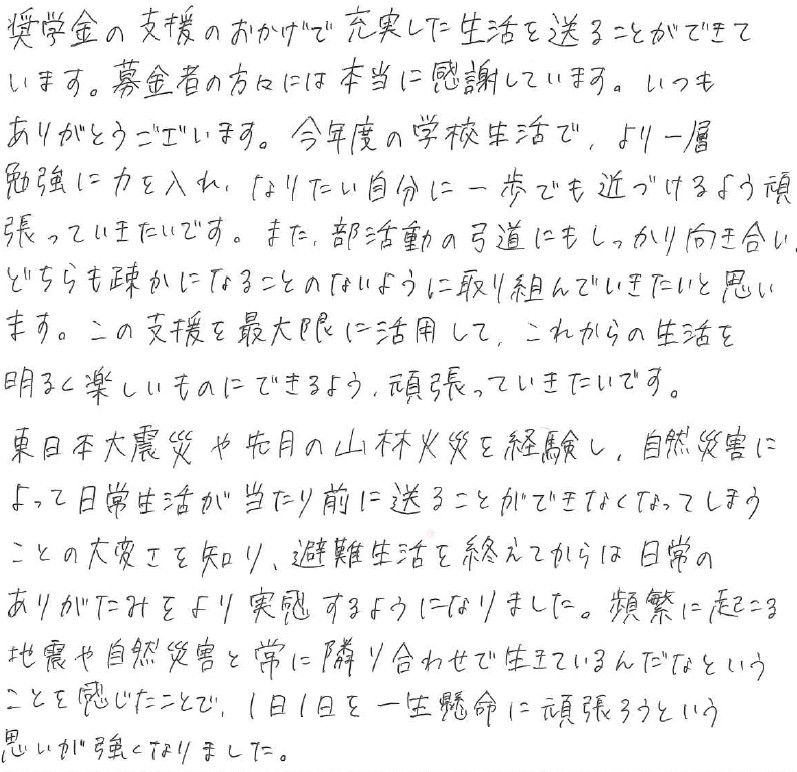 奨学金の支援のおかげで充実した生活を送ることができて
います。募金者の方々には本当に感謝しています。いつも
ありがとうございます。今年度の学校生活で、より一層
勉強に力を入れ、なりたい自分に一歩でも近づけるよう頑
張っていきたいです。また、部活動の弓道にもしっかり向き合い、
どちらも疎かになることのないように取り組んでいきたいと思い
ます。この支援を最大限に活用して、これからの生活を
明るく楽しいものにできるよう、頑張っていきたいです。
東日本大震災や先月の山林火災を経験し、自然災害に
よって日常生活が当たり前に送ることができなくなってしまう
ことの大変さを知り、避難生活を終えてからは日常の
ありがたみをより実感するようになりました。頻繁に起こる
地震や自然災害と常に隣り合わせで生きているんだなという
ことを感じたことで、1日1日を一生懸命に頑張ろうという
思いが強くなりました。